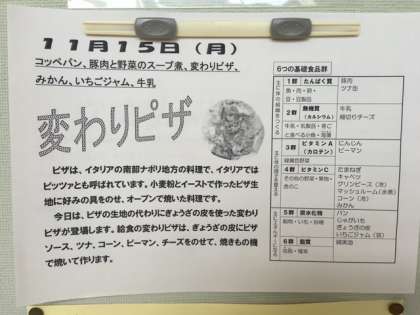 11月15日（月）
コッペパン、豚肉と野菜のスープ煮、変わりピザ、
みかん、いちごジャム、牛乳
変わりピザ
ピザは、イタリアの南部ナポリ地方の料理で、イタリアでは
ピッツァとも呼ばれています。小麦粉とイーストで作ったピザ生
地に好みの具をのせ、オーブンで焼いた料理です。
今日は、ピザの生地の代わりにぎょうざの皮を使った変わり
ピザが登場します。給食の変わりピザは、ぎょうざの皮にピザ
ソース、ツナ、コーン、ピーマン、チーズをのせて、焼きもの機
で焼いて作ります。
6つの基礎食品群
1群 たんぱく質
魚・肉・卵・
豆・豆製品
豚肉
ツナ缶
2群 無機質
(カルシウム)
牛乳・乳製品・骨ご
と食べる小魚・海藻
牛乳
細切りチーズ
3群 ビタミンA
(カロチン)
緑黄色野菜
にんじん
ピーマン
4群 ビタミンC
その他の野菜・果物・
きのこ
たまねぎ
キャベツ
グリンピース(冷)
マッシュルーム(水煮)
コーン(冷)
みかん
5群 炭水化物
穀物・いも・砂糖
パン
じゃがいも
ぎょうざの皮
いちごジャム(袋)
6群 脂質
油脂・種実
綿実油